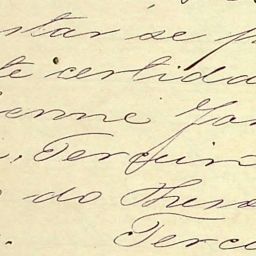 star se p
te certida
ienne Jan
Terceir
do Thes
Terce